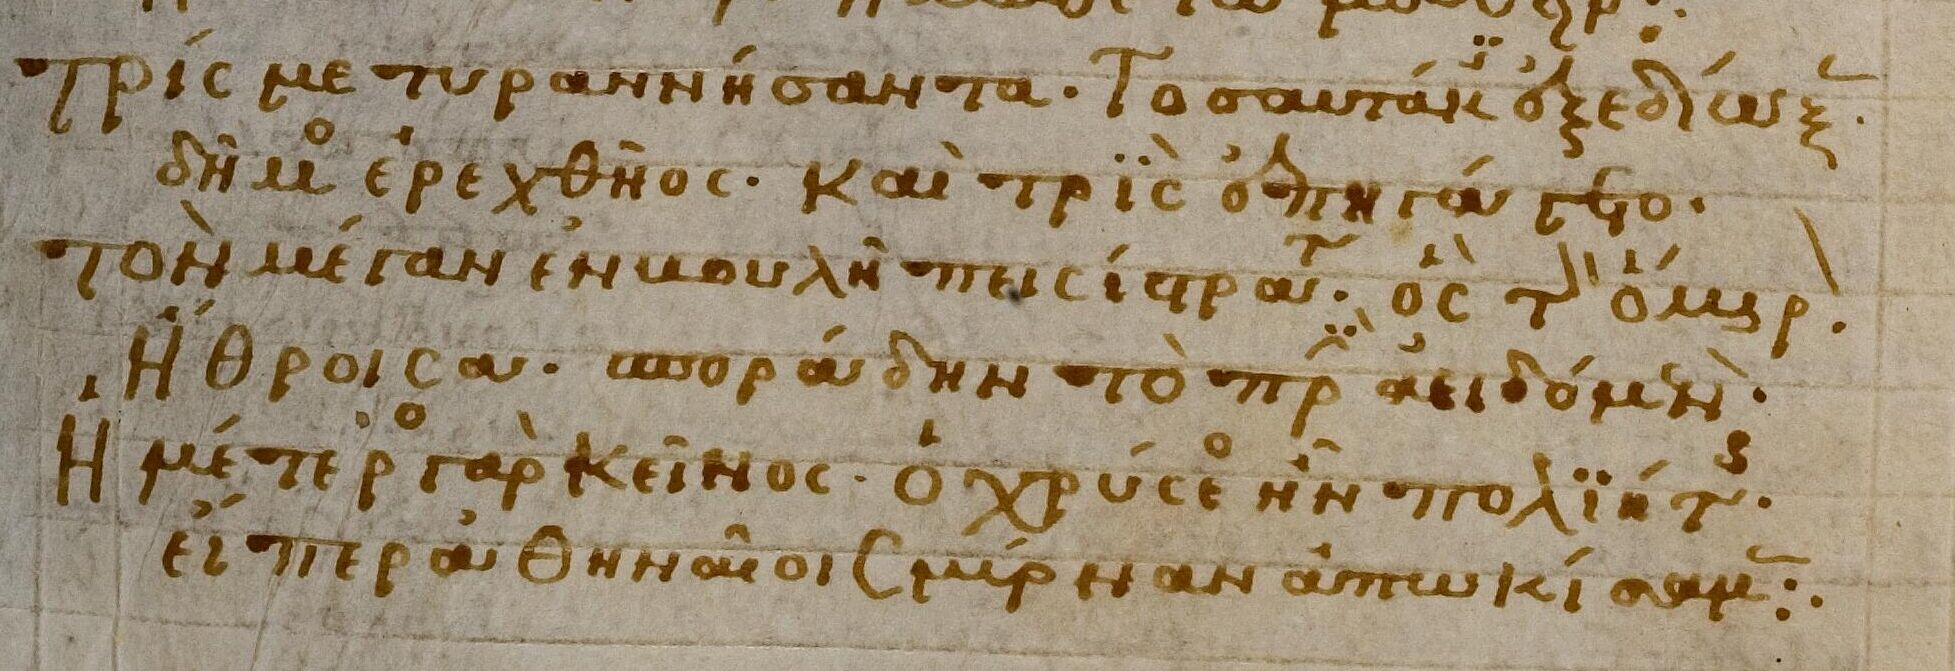 τρίς με τυραννήσαντα. Τοσαυτάκϊς ἐξεδίωξ.
δῆμο ἐρεχθῆος. καὶ τρῒς ἐπηγάγετο.
τὸν μέγαν ἐν βουλῆ πεισίστρατ. ὃς τὸν ὅμηρ.
Ἤθροισα. σποράδην τὸ πρῒν ἀειδόμενον.
Ἡμέτερο γὰρ κεῖνος. ὁ χρύσεο ἦν πολϊήτης.
εἴπερ ἀθηναῖοι Σμύρναν ἀπωκίσαμ:.